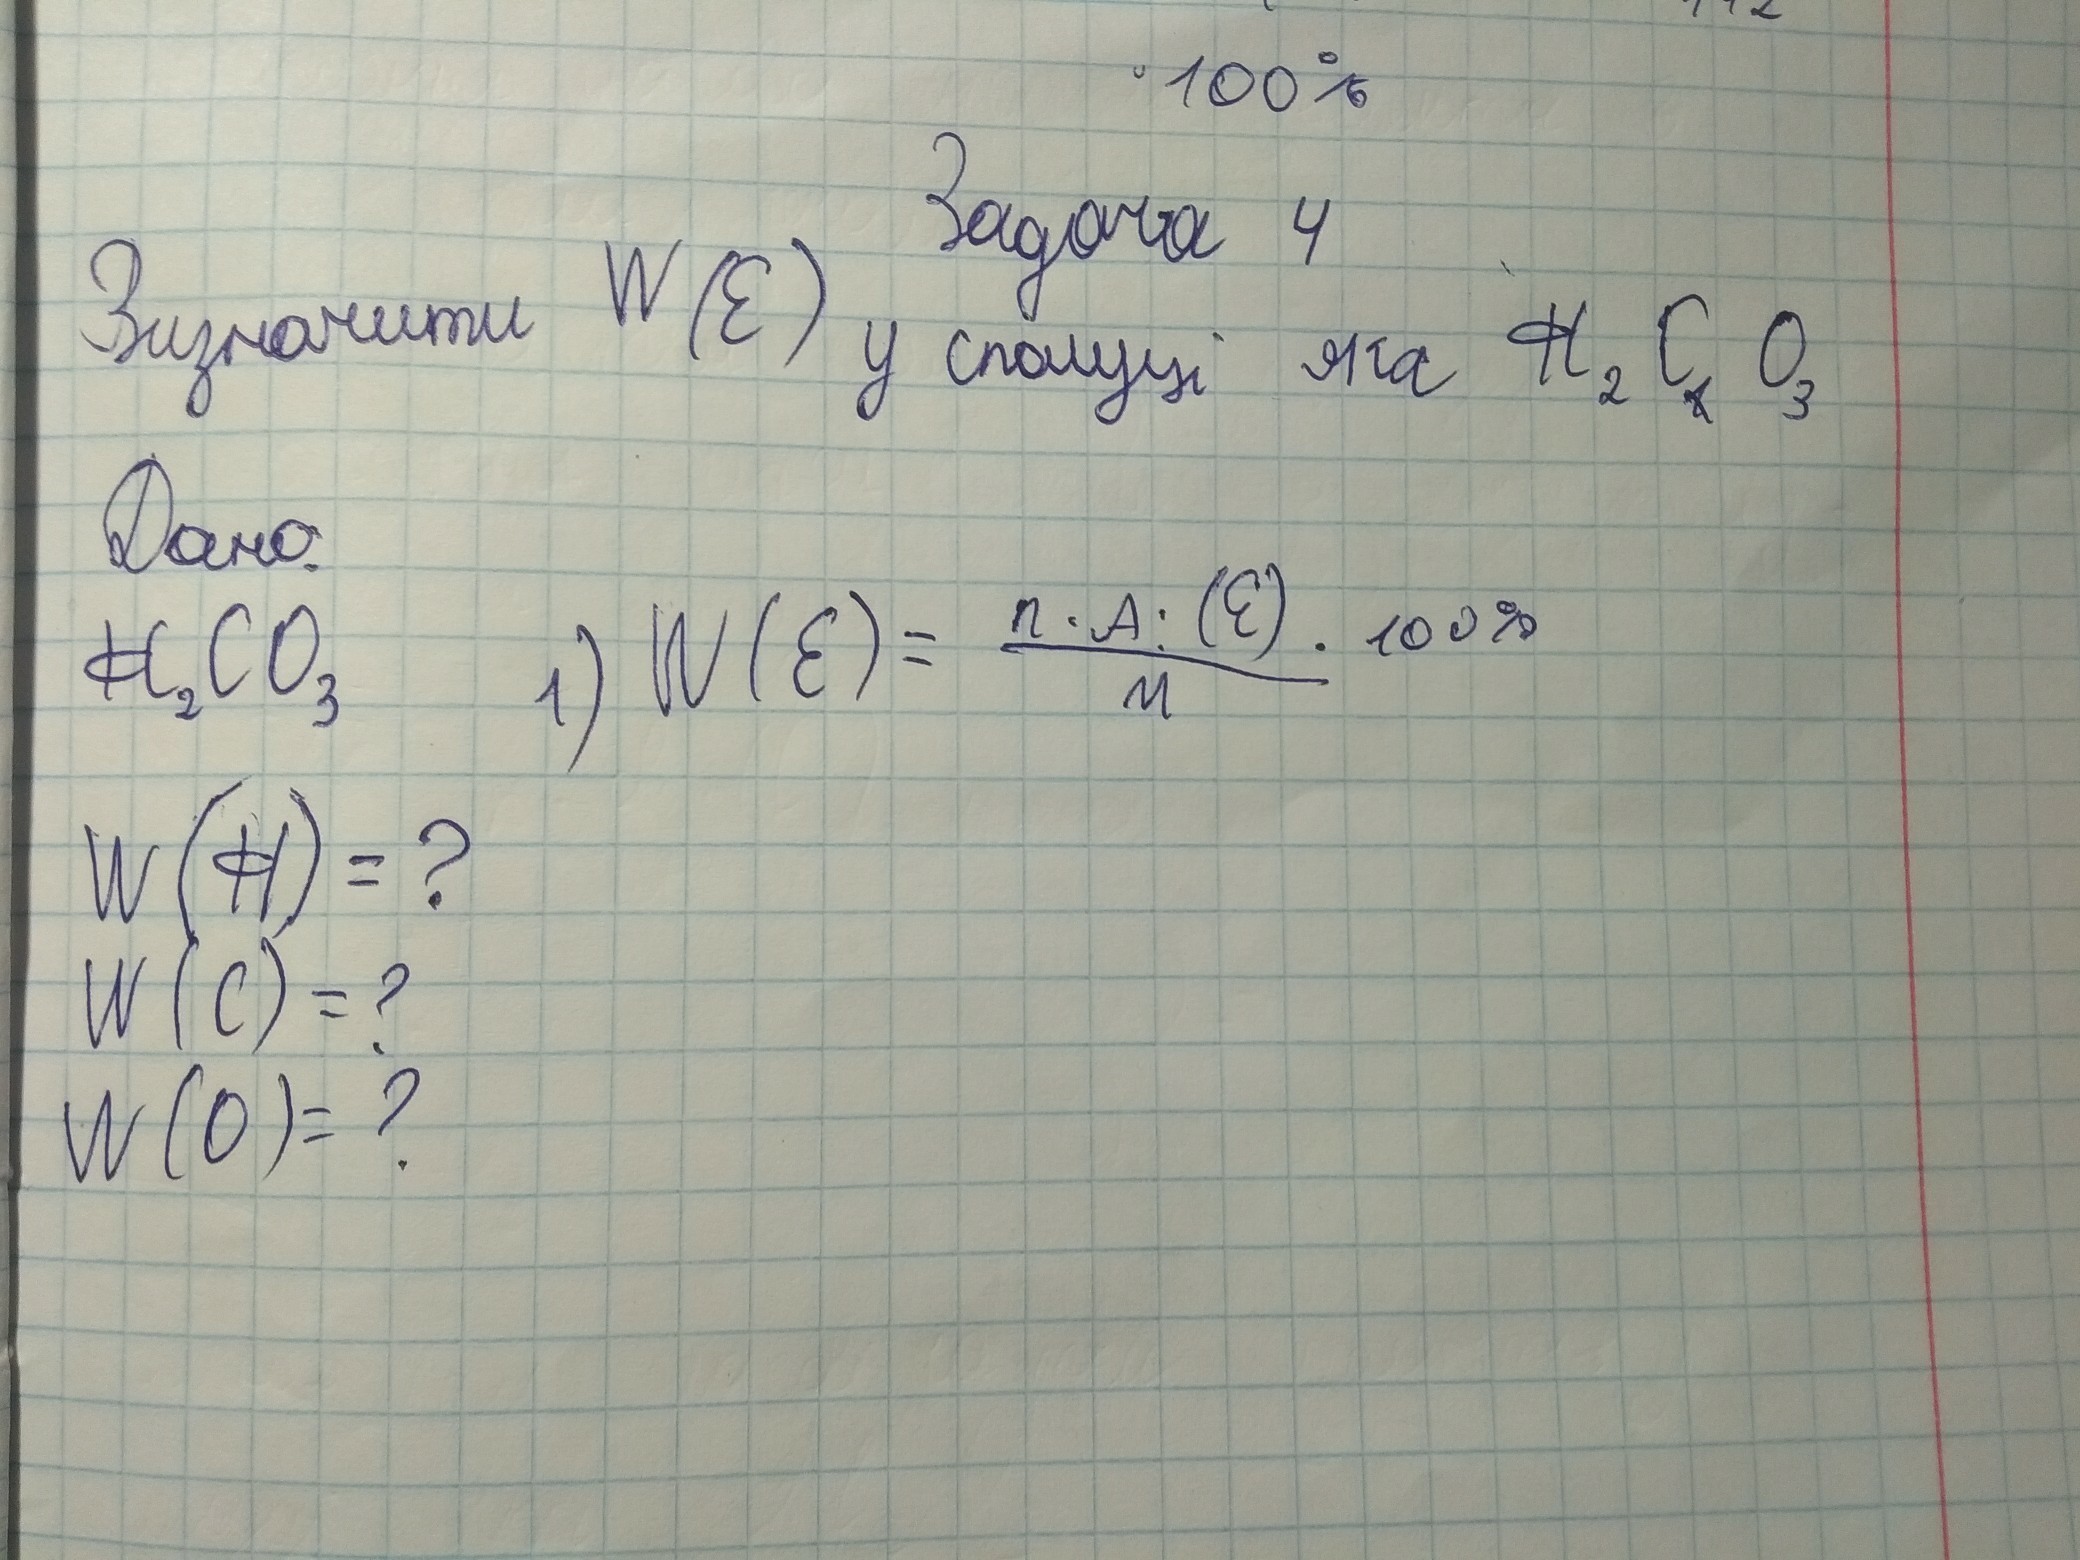 · 100%
Задача 4
Визначити W(E) у сполуці яка H₂CO₃
Дано:
H₂CO₃
1) W(E) = n · Ar (E) / M · 100%
W(H) = ?
W(C) = ?
W(O) = ?